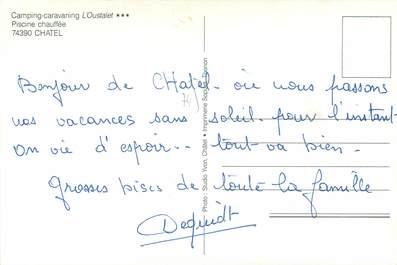 Camping-caravaning L'Oustalet ★★★
Piscine chauffée
74390 CHATEL
Bonjour de CHatel. où nous passons
74)
nos vacances sans soleil. pour l'instant
on vie d'espoir... tout va bien.
grosses bises de toute la famille
Dequidt
Photo : Studio Yvon, Châtel • Imprimerie